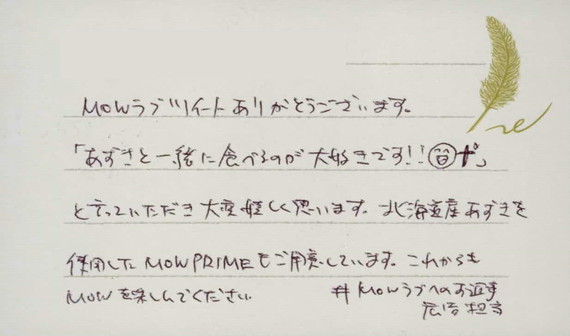 MOWラブツイートありがとうございます。
「あずきと一緒に食べるのが大好きです!!
と言っていただき大変嬉しく思います。北海道産あずきを
使用したMOW PRIMEもご用意しています。これからも
MOWを楽しんでください #MOWラブへのお返事
広告担当